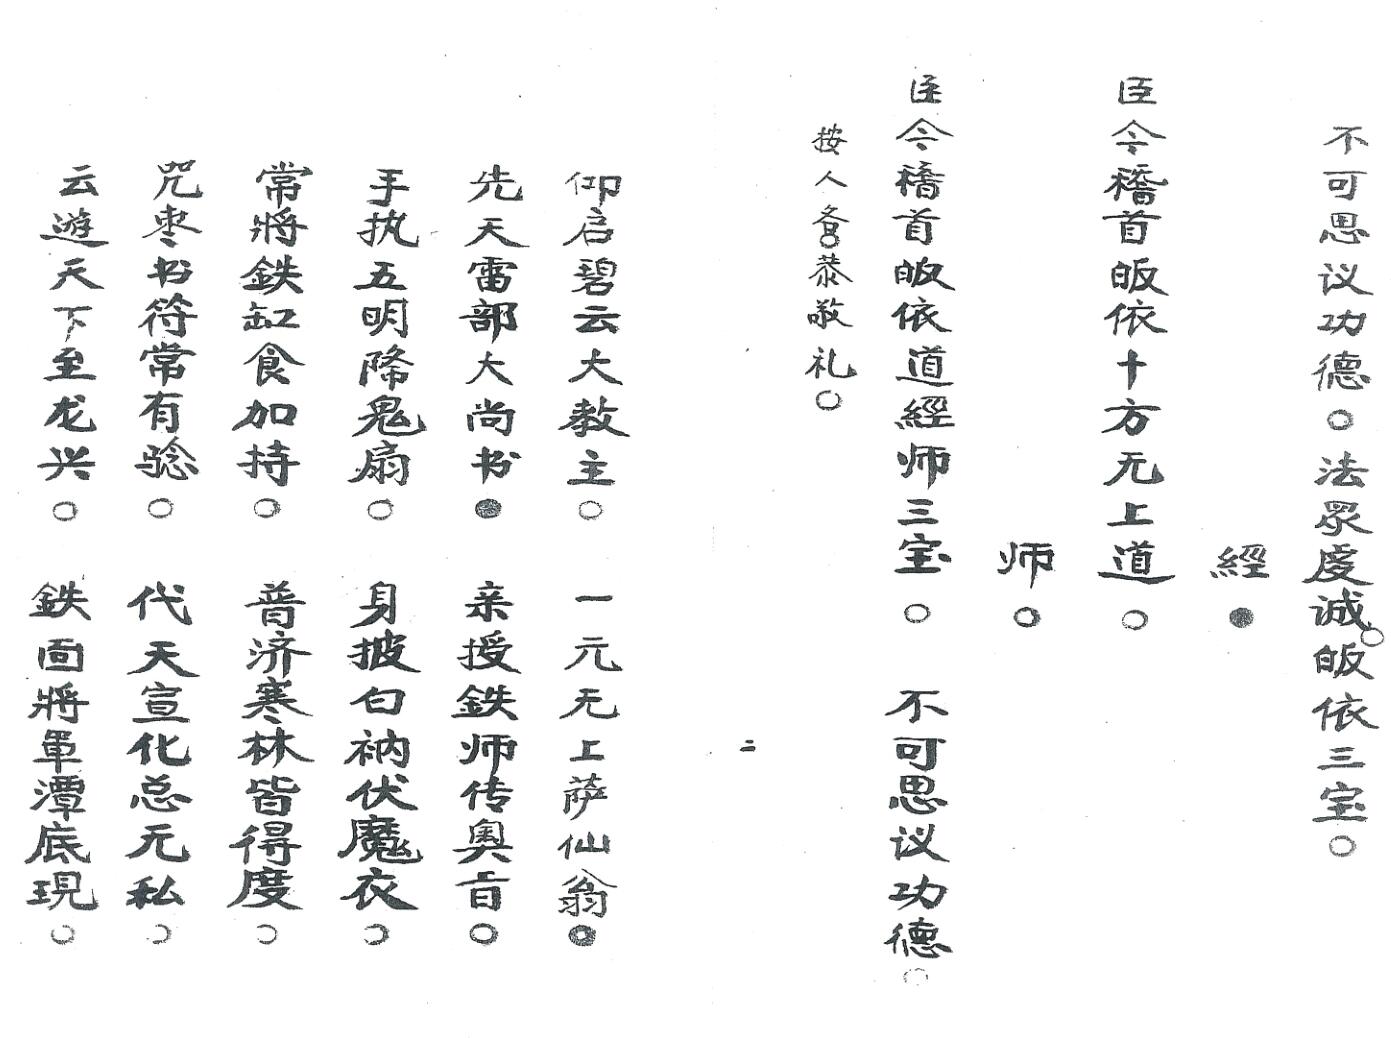 不可思议功德○法眾虔诚皈依三宝○
經●
臣今稽首皈依十方无上道○
师○
臣今稽首皈依道經师三宝○ 不可思议功德○
按人各恭敬礼○
二
仰启碧云大教主○ 一元无上萨仙翁●
先天雷部大尚书● 亲授鉄师传奥旨○
手执五明降鬼扇○ 身披白衲伏魔衣○
常將鉄缸食加持○ 普济寒林皆得度○
咒枣书符常有验○ 代天宣化总无私○
云遊天下至龙兴○ 鉄面將軍潭底現○